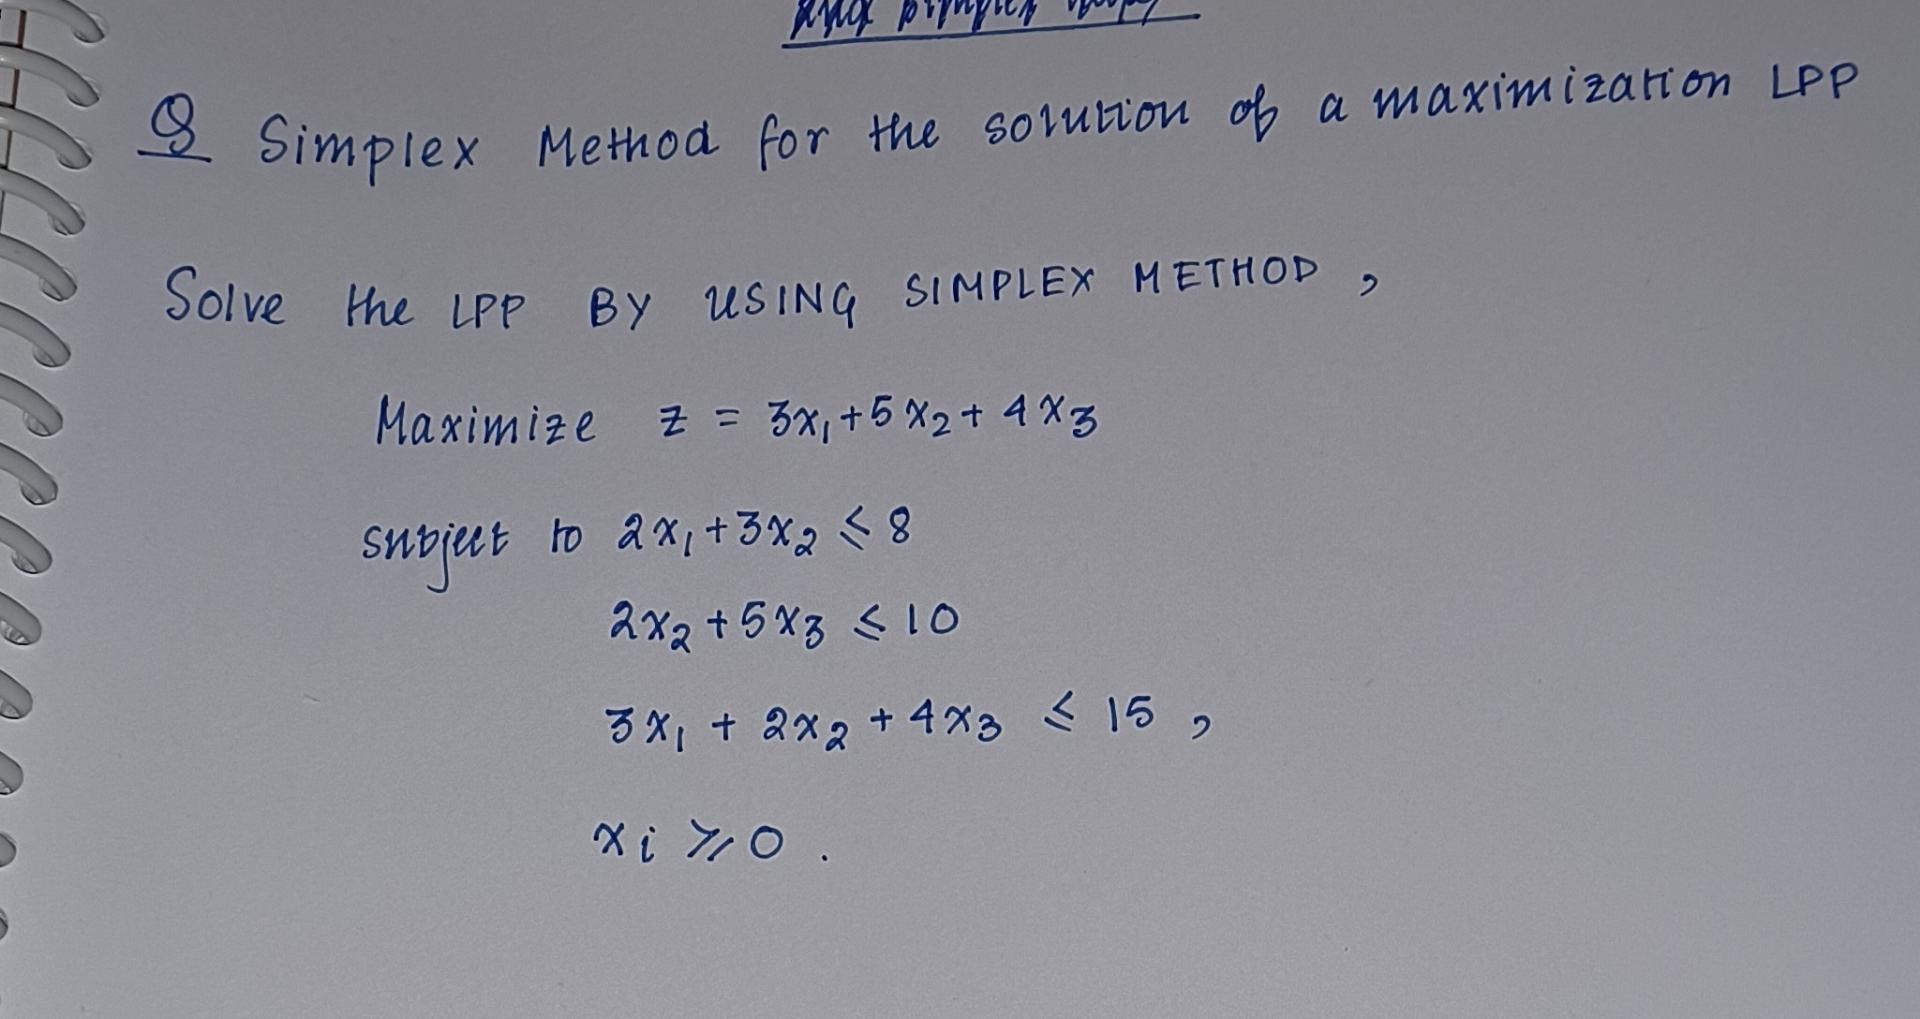 Q Simplex Method for the solution of a maximization LPP
Solve the LPP BY USING SIMPLEX METHOD ,
Maximize z = 3x₁+5x₂+4x₃
subject to 2x₁+3x₂ ⩽ 8
2x₂+5x₃ ⩽ 10
3x₁ + 2x₂ + 4x₃ ⩽ 15 ,
xi ⩾ 0 .